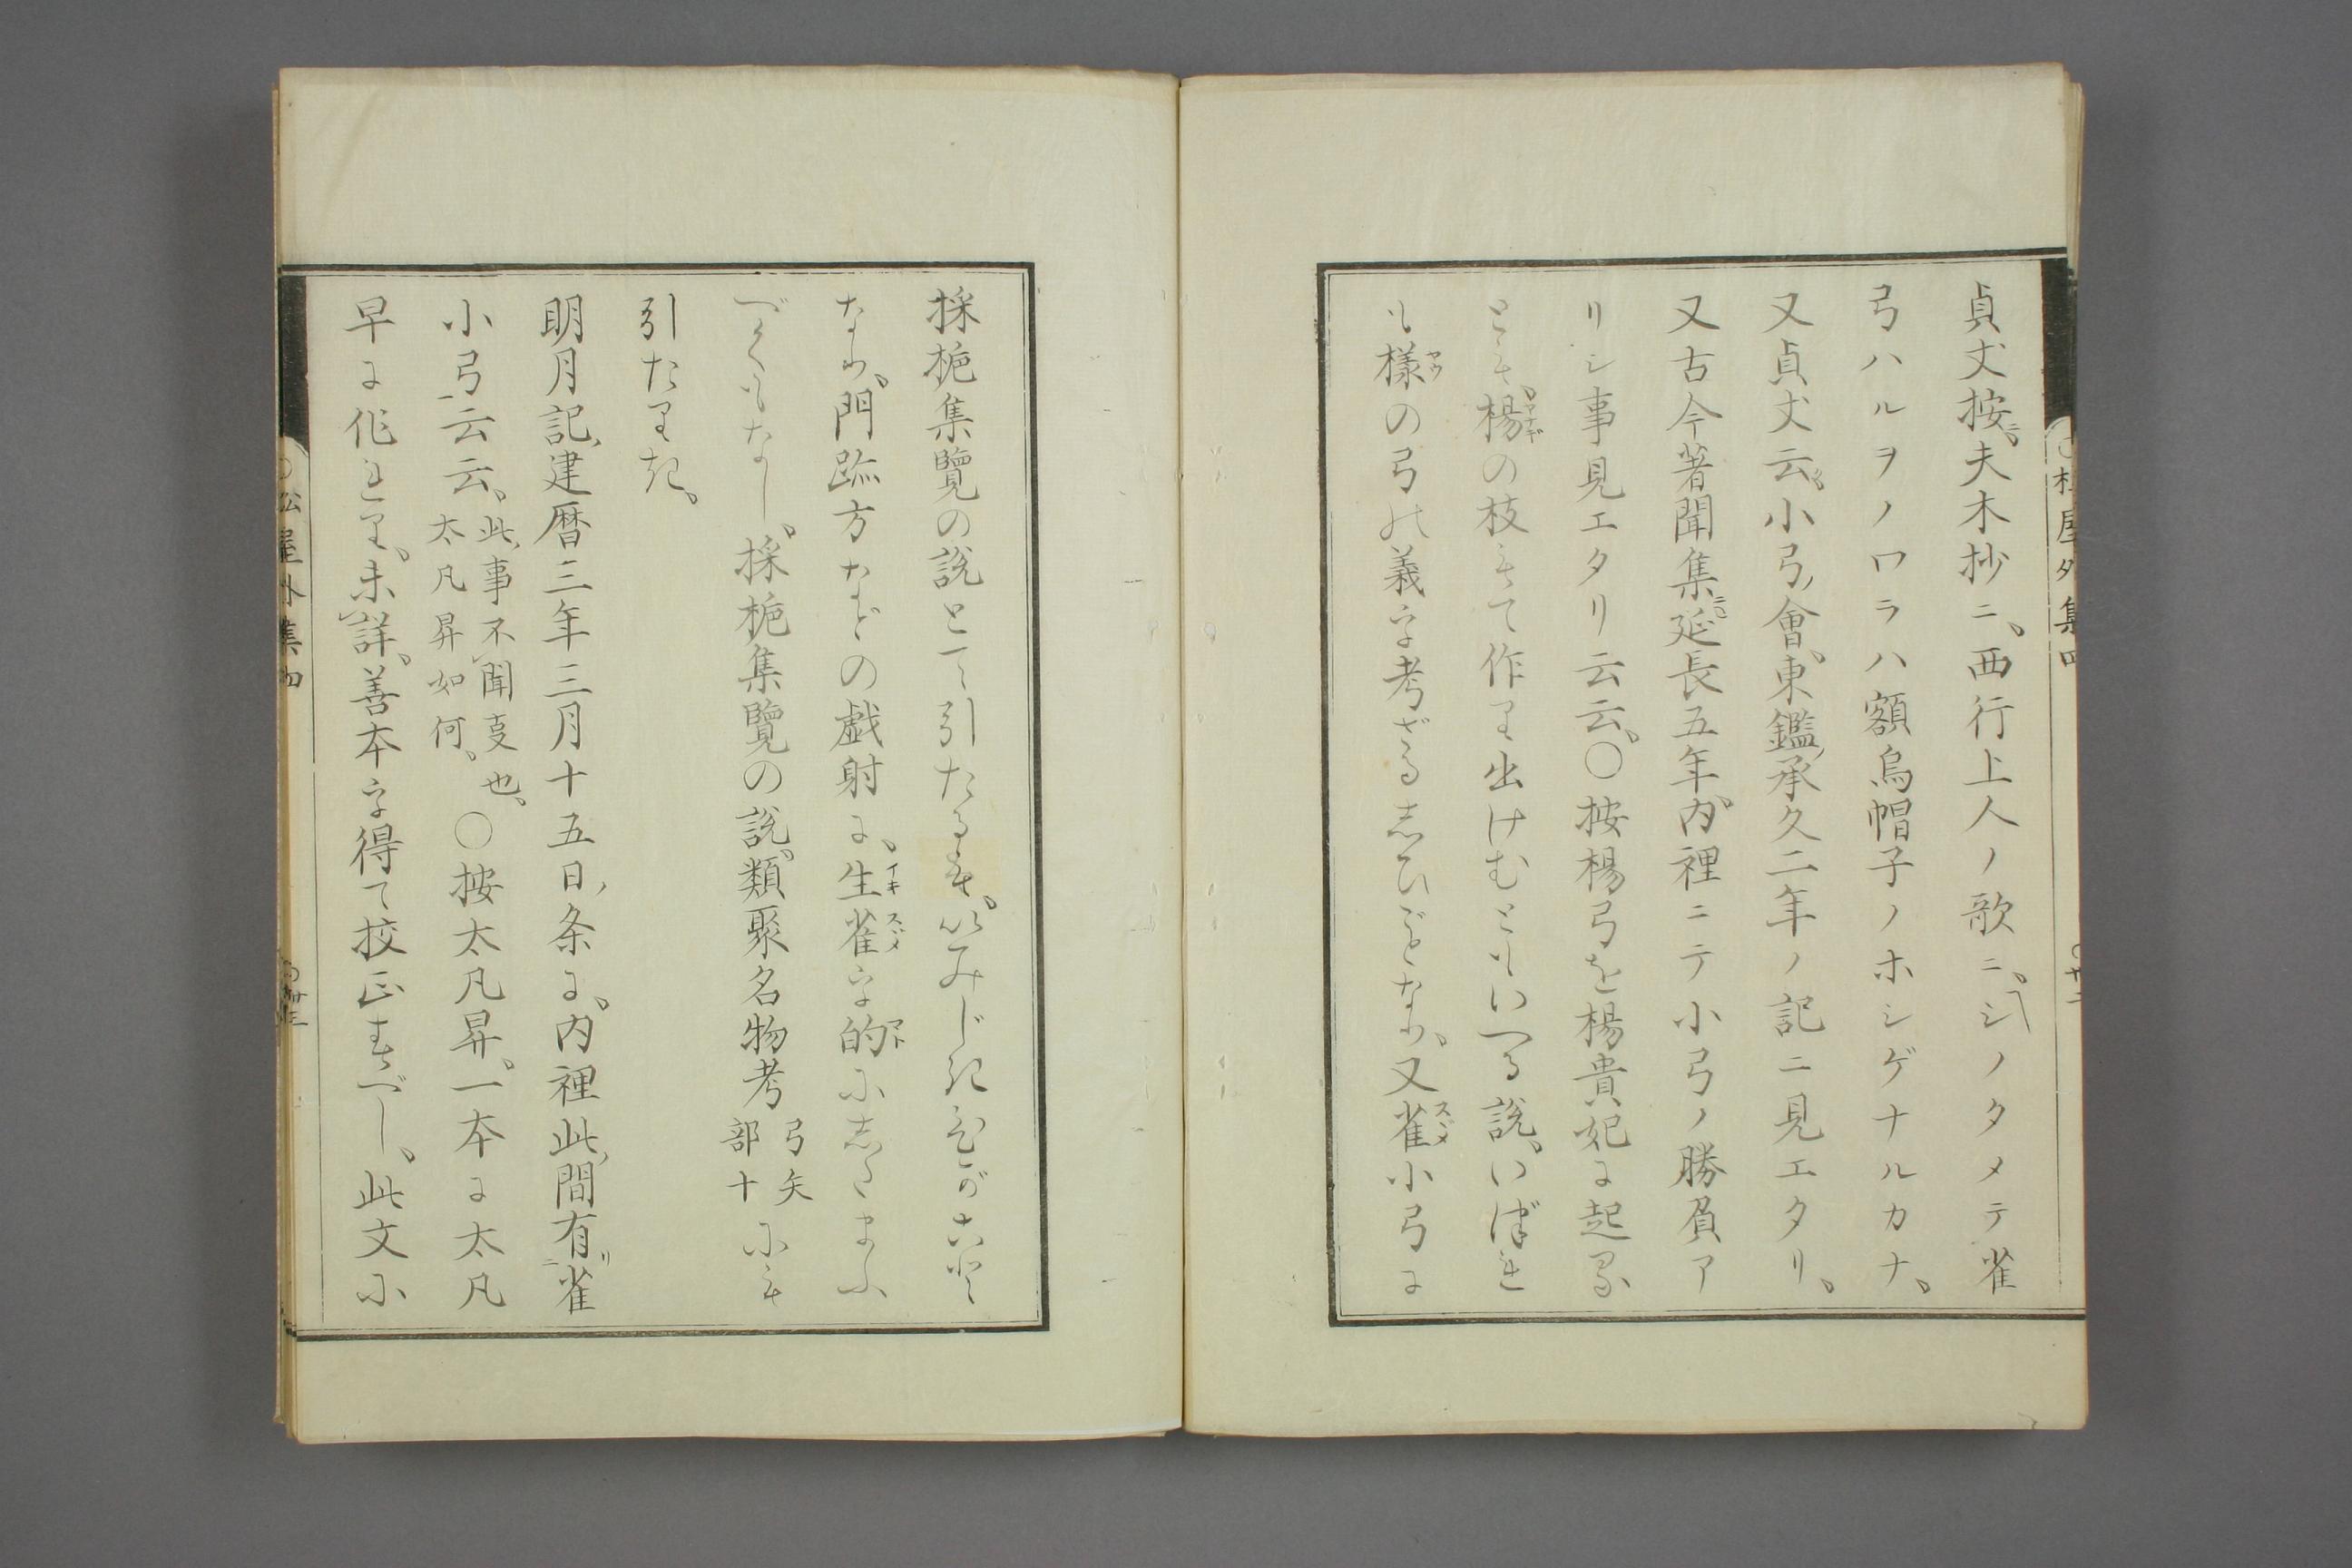 貞丈按ニ、夫木抄ニ、西行上人ノ歌ニ、シノタメテ雀
弓ハルヲノワラハ額烏帽子ノホシゲナルカナ、
又貞丈云、小弓會、東鑑承久二年ノ記ニ見エタリ、
又古今著聞集ニ、延長五年内裡ニテ小弓ノ勝負ア
リシ事見エタリ云云、○按楊弓を楊貴妃に起る
とも、楊の枝もて作り出けむともいへる説、いづれ
も様の弓の義を考ざるしひごとなり、又雀小弓に
採栀集覽の説とて引たるは、いみじきひがこと
なり、門跡方などの戯射に、生雀を的にしたまふ
べくもなし、採栀集覽の説、類聚名物考弓矢部十にも
引たりき、
明月記、建暦三年三月十五日、条に、内裡此間有雀
小弓云云、此事不聞㕝也、太凡昇如何、○按太凡昇、一本に太凡
早に作れり、未詳、善本を得て校正すべし、此文に
松屋外集四